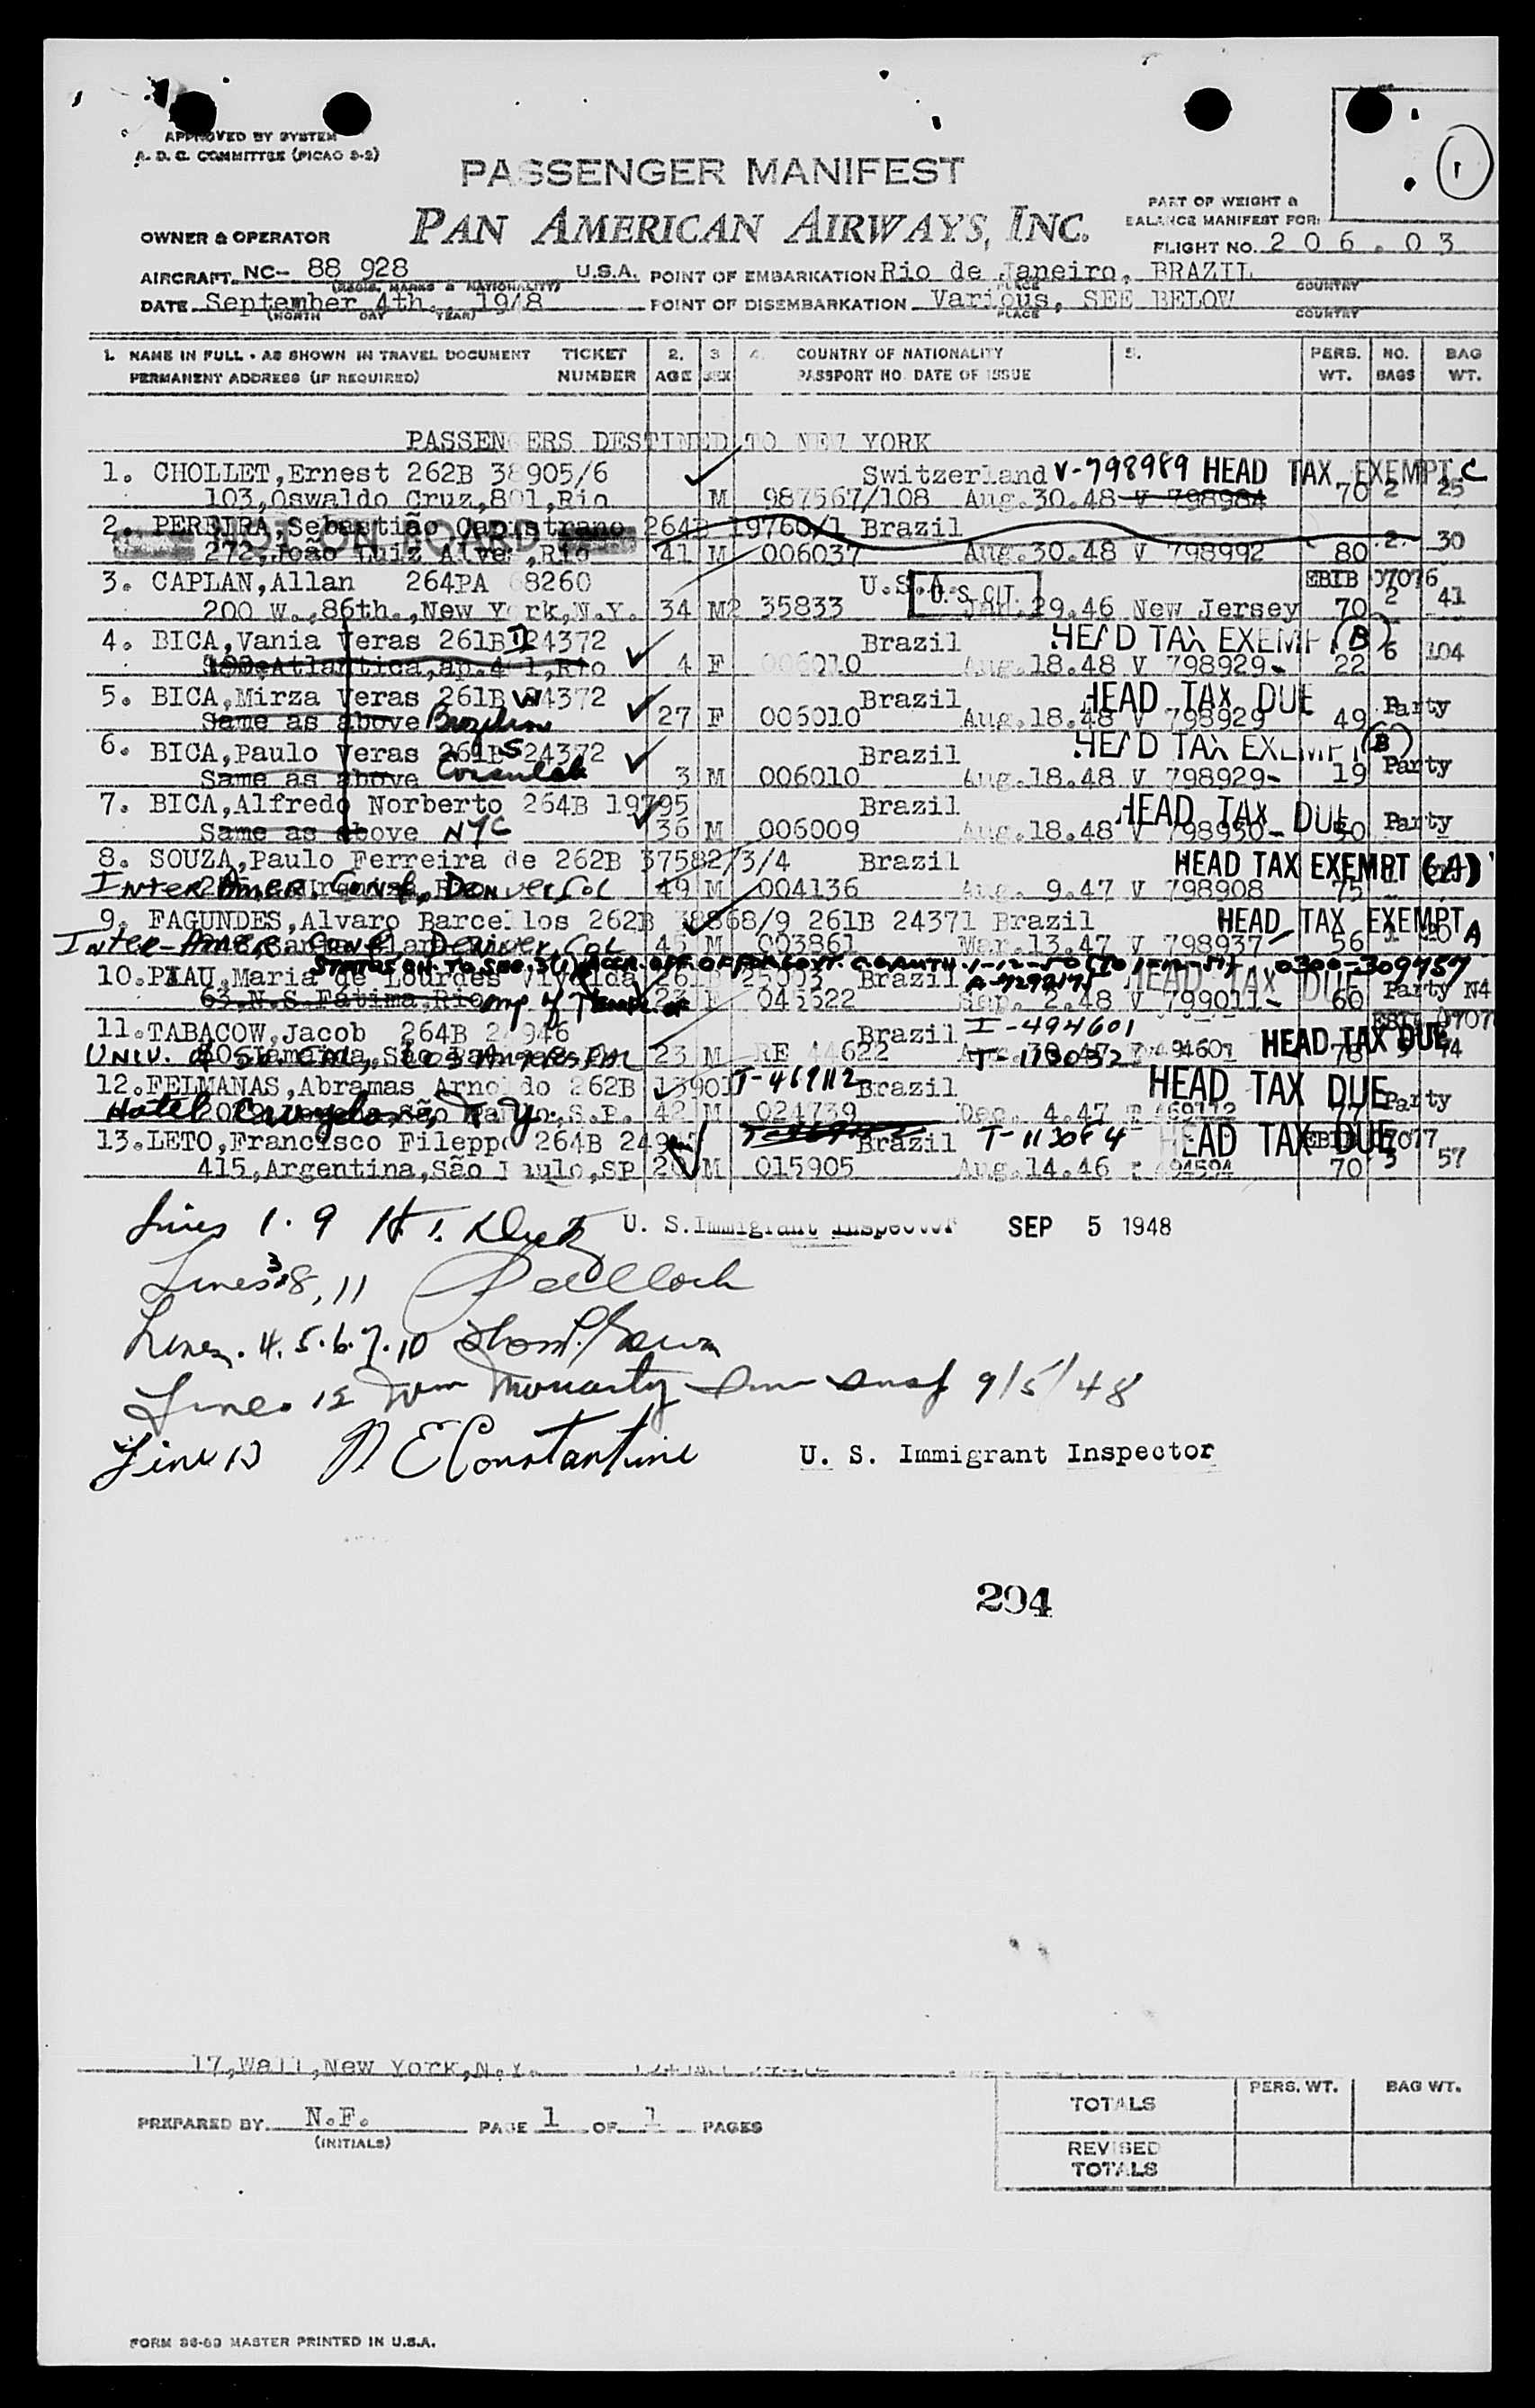 1
APPROVED BY SYSTEM
A. D. C. COMMITTEE (PICAO 9-2)
PASSENGER MANIFEST
PAN AMERICAN AIRWAYS, INC.
PART OF WEIGHT &
BALANCE MANIFEST FOR:
OWNER & OPERATOR
FLIGHT NO. 206.03
AIRCRAFT. NC- 88 928 U.S.A. POINT OF EMBARKATION Rio de Janeiro, BRAZIL
(REGIS. MARKS & NATIONALITY) PLACE COUNTRY
DATE September 4th., 1948 POINT OF DISEMBARKATION Various, SEE BELOW
(MONTH DAY YEAR) PLACE COUNTRY
1. NAME IN FULL - AS SHOWN IN TRAVEL DOCUMENT TICKET 2. 3 4. COUNTRY OF NATIONALITY 5. PERS. NO. BAG
PERMANENT ADDRESS (IF REQUIRED) NUMBER AGE SEX PASSPORT NO. DATE OF ISSUE WT. BAGS WT.
PASSENGERS DESTINED TO NEW YORK
1. CHOLLET,Ernest 262B 38905/6 Switzerland V-798989 HEAD TAX EXEMPT C
103,Oswaldo Cruz,801,Rio M 987567/108 Aug.30.48 V 798984 70 2 25
2. PEREIRA,Sebastião Capistrano 264B 19760/1 Brazil
NOT ON BOARD
272,João Luiz Alves,Rio 41 M 006037 Aug.30.48 V 798992 80 2 30
3. CAPLAN,Allan 264PA 68260 U.S.A. U.S. CIT. EBIB 07076
200 W.,86th.,New York,N.Y. 34 M2 35833 Jan.29.46 New Jersey 70 2 41
4. BICA,Vania Veras 261B 24372 Brazil HEAD TAX EXEMP (B)
Atlantica,ap.401,Rio 4 F 006010 Aug.18.48 V 798929- 22 6 104
5. BICA,Mirza Veras 261B 24372 Brazil HEAD TAX DUE
Same as above Brazilian 27 F 006010 Aug.18.48 V 798929 49 Party
6. BICA,Paulo Veras 261B 24372 Brazil HEAD TAX EXEMPT (B)
Same as above Consulate 3 M 006010 Aug.18.48 V 798929- 19 Party
7. BICA,Alfredo Norberto 264B 19795 Brazil HEAD TAX DUE
Same as above NYC 36 M 006009 Aug.18.48 V 798930- Party
8. SOUZA,Paulo Ferreira de 262B 37582/3/4 Brazil HEAD TAX EXEMPT (A)
INTER AMER. CONF., DENVER COL 49 M 004136 Aug. 9.47 V 798908 75
9. FAGUNDES,Alvaro Barcellos 262B 38868/9 261B 24371 Brazil HEAD TAX EXEMPT A
INTER-AMER. CONF. DENVER, COL 45 M 003861 Mar.13.47 V 798937 56
10. Maria de Lourdes Brazil HEAD TAX DUE
63,N.S.Fátima,Rio Sep. 2.48 V 799011- 60 Party
11.TABACOW,Jacob 264B Brazil I-494601
UNIV. OF SO. CAL, LOS ANGELES, CAL 23 M RE 44622 T-113032 494601 HEAD TAX DUE
12.FELMANAS,Abramas Arnoldo 262B 13901 T-469112 Brazil HEAD TAX DUE
Hotel N.Y. 42 M 024739 Dec. 4.47 469112 77 Party
13.LETO,Francisco Fileppo 264B Brazil T-113084 HEAD TAX DUE
415,Argentina,São Paulo,SP M 015905 Aug.14.46 494594 70 3 57
Lines 1. 9 U. S.Immigrant Inspector SEP 5 1948
Lines 3,8,11
Lines. 4.5.6.7.10
Line. 12 Wm Moriarty 9/5/48
Line 13 Constantine U. S. Immigrant Inspector
294
17,Wall,New York,N.Y.
PERS. WT. BAG WT.
TOTALS
PREPARED BY. N.F. PAGE 1 OF 1 PAGES
(INITIALS)
REVISED
TOTALS
FORM 36-60 MASTER PRINTED IN U.S.A.